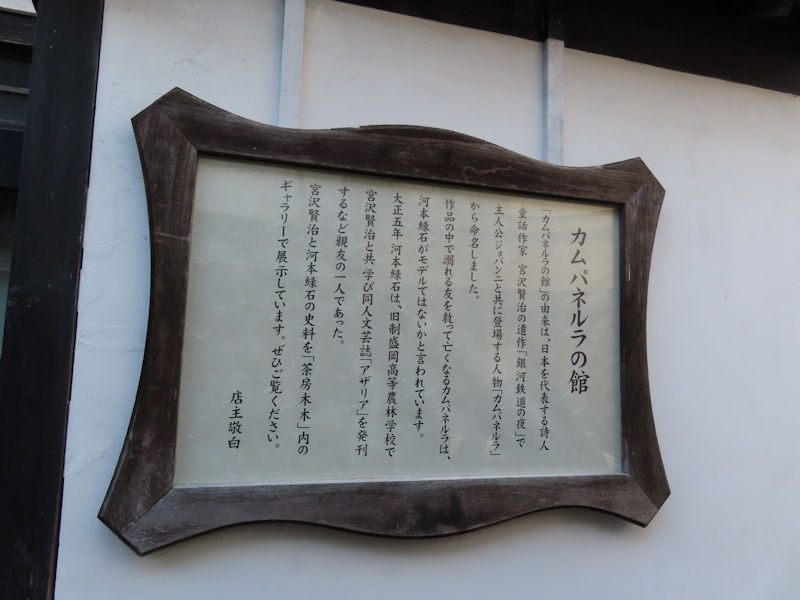 カムパネルラの館
「カムパネルラの館」の由来は、日本を代表する詩人
童話作家 宮沢賢治の遺作「銀河鉄道の夜」で
主人公ジョバンニと共に登場する人物「カムパネルラ」
から命名しました。
作品の中で溺れる友を救って亡くなるカムパネルラは、
河本緑石がモデルではないかと言われています。
大正五年 河本緑石は、旧制盛岡高等農林学校で
宮沢賢治と共に学び同人文芸誌「アザリア」を発刊
するなど親友の一人であった。
宮沢賢治と河本緑石の史料を「茶房木木」内の
ギャラリーで展示しています。ぜひご覧ください。
店主敬白